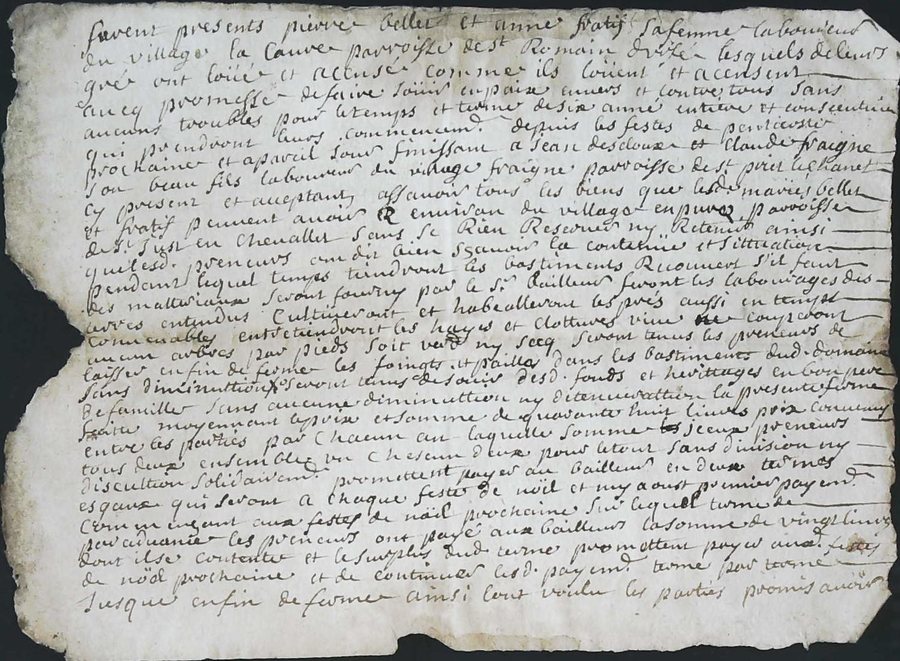 furent presents pierre bellet et anne fratif sa femme laboureurs
du village la Cauve parroisse de st Romain d'urfé lesquels de leurs
gré ont loüée et accusé comme ils loüent et accensent
avcq promesse de faire joüir en paix envers et contre tous sans
aucuns troubles pour le temps et terme de six anné entiere et consecutive
qui prendront leurs commencemt. depuis les festes de penticoste
prochaine et a pareil jour finissant a Jean descloux et Claude fraigne
son beau fils laboureur du village fraigne parroisse de st priet
cy present et aceptant, assavoir tous les biens que lesd. mariés bellet
et fratif peuvent avoir R environ du village en puez parroisse
de st Just en Chevallet sans se Rien Reserver ny Retenir ainsi
que lesd. preneurs ont dit bien sçavoir la contenüe et situation
pendant lequel temps tiendront les bastiments Recouvert s'il faut
des matteriaux seront fourny par le sr. Bailleur feront les labourages des
terres entendus Cultiveront et habealleront les prés aussi en temps
convenables entretiendront les hayes et clottures vive ne coupront
aucun arbres par pieds soit verd ny secq seront tenus les preneurs de
laisser en fin de ferme les foingts et pailles dans les bastiments dud. domaine
sans diminuttion seront tenus de Jouir desd. fonds et herittages en bon pere
de famille sans aucune diminuttion ny ditenerattion la presente ferme
faite moyennant le prix et somme de quarante huit livres prix convenu
entre les parties par Chacun an laquelle somme iceux preneurs
tous deux ensemble un Chescun d'eux pour le tout sans division ny
discution solidairemt. promettent payer au bailleur en deux termes
esgaux qui seront a chaque feste de noël et my aoust premier payemt.
Commençant aux festes de noël prochaine sur lequel terme de
par advance les preneurs ont payé aux bailleurs la somme de vingt livres
dont il se contente et le surplus dud. terme promettent payer aud. festes
de noël prochaine et de continuer lesd. payemt. terme par terme
Jusque en fin de ferme ainsi l'ont voulu les parties promis avoir